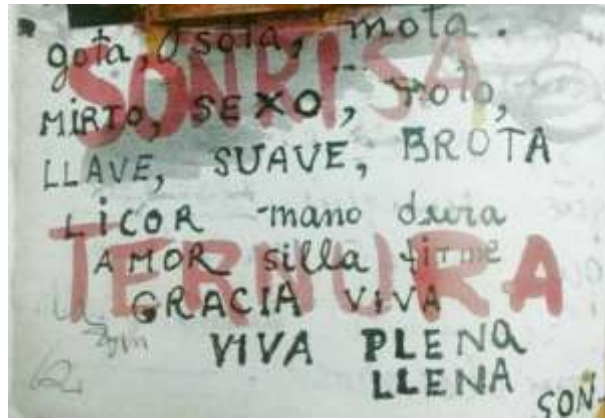 gota, sota, mota.
SONRISA
MIRTO, SEXO, roto,
LLAVE, SUAVE, BROTA
LiCOR -mano
TERNURA
AMOR silla firme
GRACIA ViVA
VIVA PLENA
LLENA
SON-